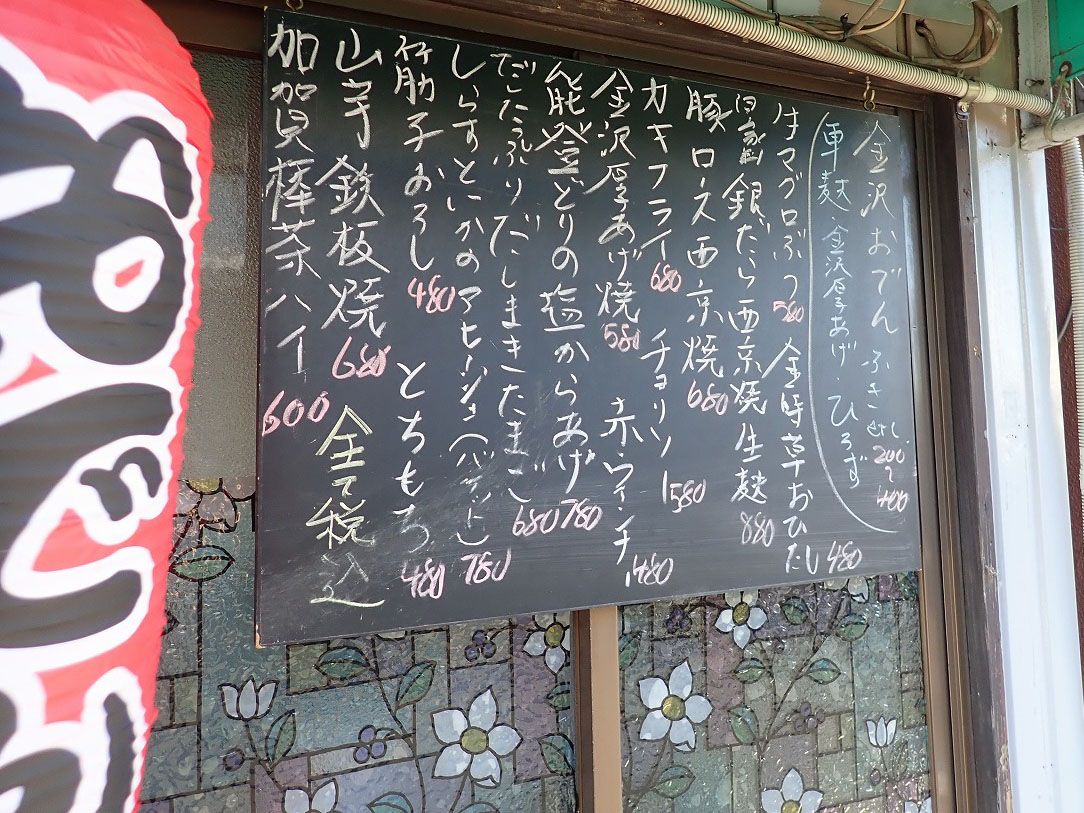 金沢おでん ふき etc. 200〜400
車麸・金沢厚あげ・ひろず
生マグロぶつ 580 金時草おひたし 480
自家製銀だら西京焼 生麸 880
豚ロース西京焼 680
カキフライ 680 チョリソー 580
金沢厚あげ焼 580 赤・ウインナー 480
能登どりの塩からあげ 780
だしたっぷりだしまきたまご 680
しらすといかのアヒージョ(バゲット) 780
筋子おろし 480 とちもち 480
山芋鉄板焼 680 全て税込
加賀棒茶ハイ 600